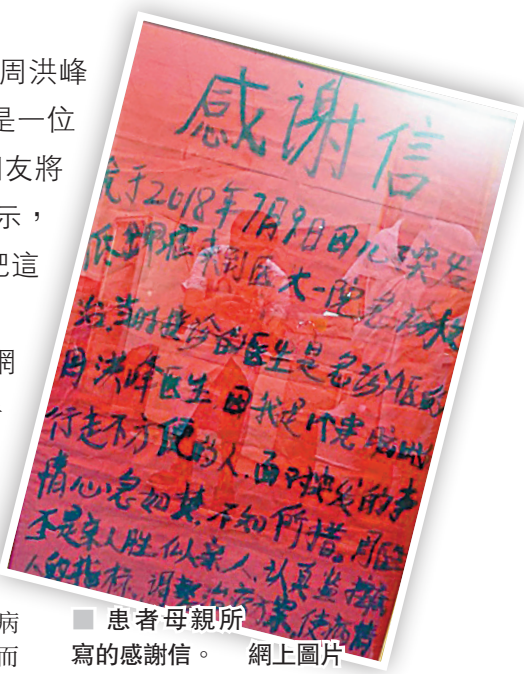 周洪峰
是一位
友將
示，
把這
網
病
而
感謝信
于2018年7月9日因儿突发
低钾症来到医大一院急诊救
治当时接诊的医生是急诊
周洪峰医生因我是个患脑
行走不方便的人.面对突发的事
情心急如焚.不知所措.周医
不是亲人胜似亲人.认真监控病
人的指标.调整治疗方案.使病情
■ 患者母親所
寫的感謝信。 網上圖片